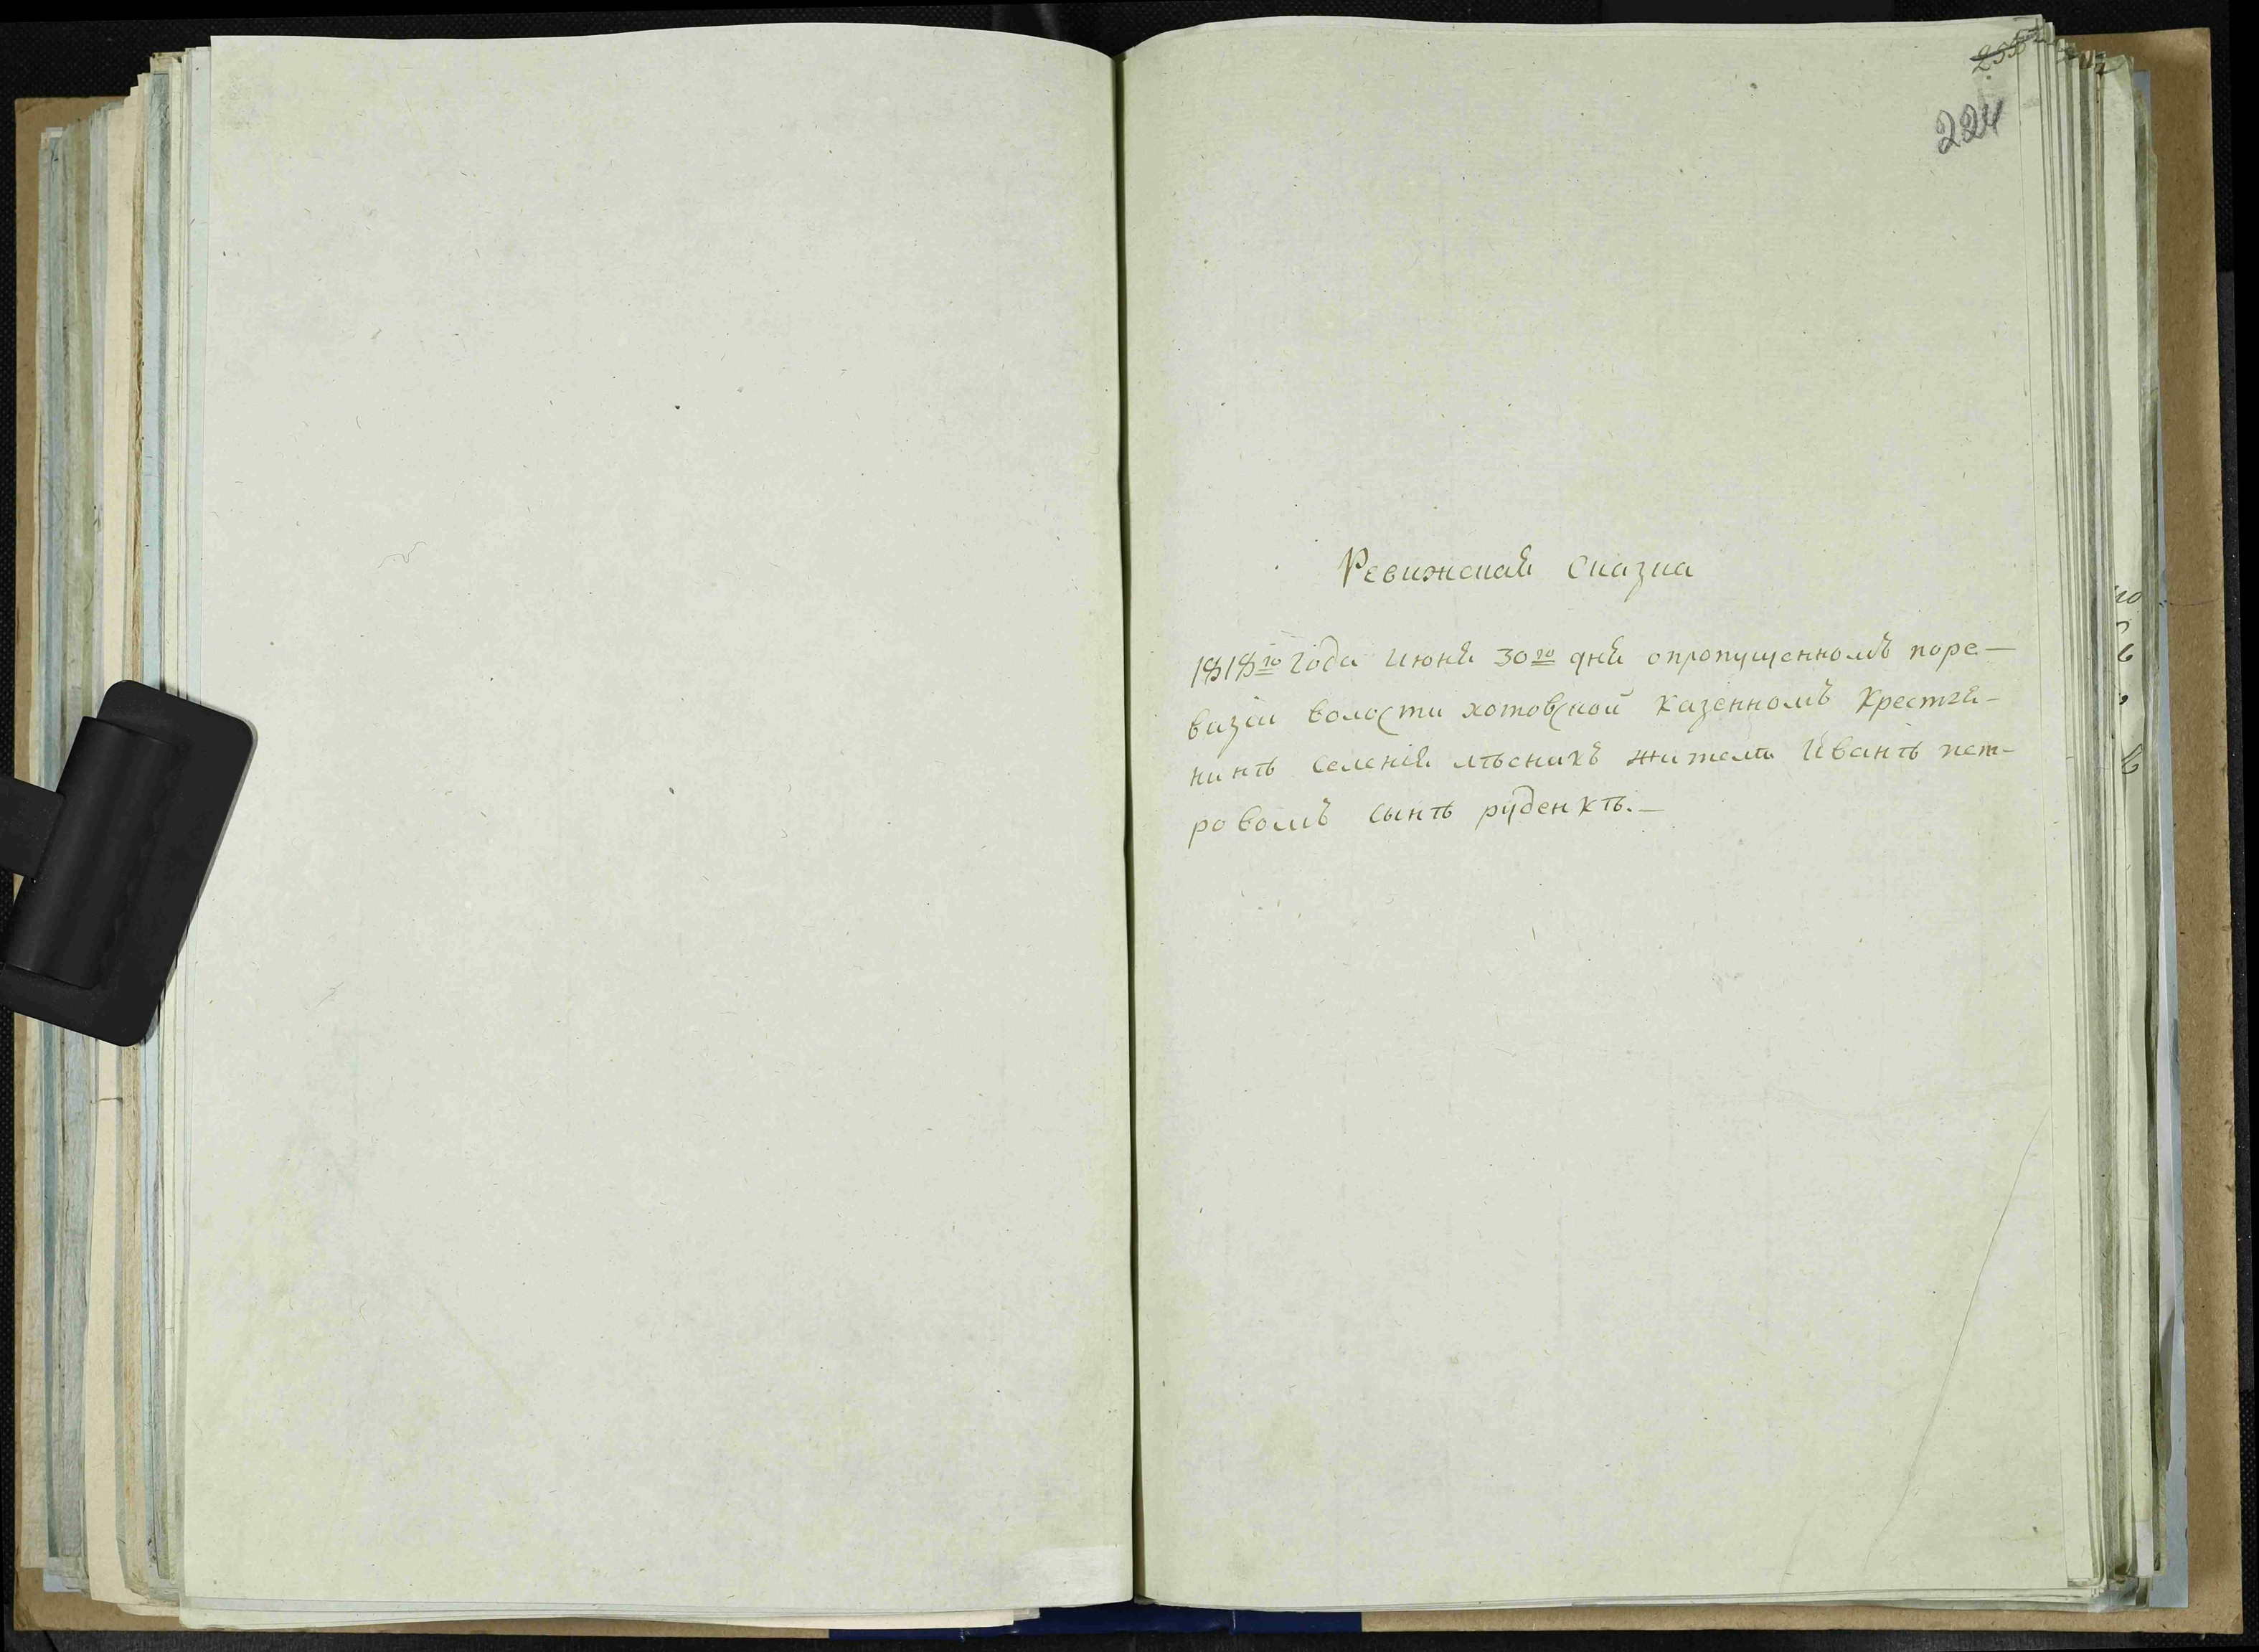 224
Ревижская Сказка
1818го Года июня 30го дня опропущенномъ поре-
визіи волости хотовской казенномъ крестя-
нинѣ селенія лѣсникъ жителѣ Иванѣ пет-
ровомъ сынѣ руденкѣ.—